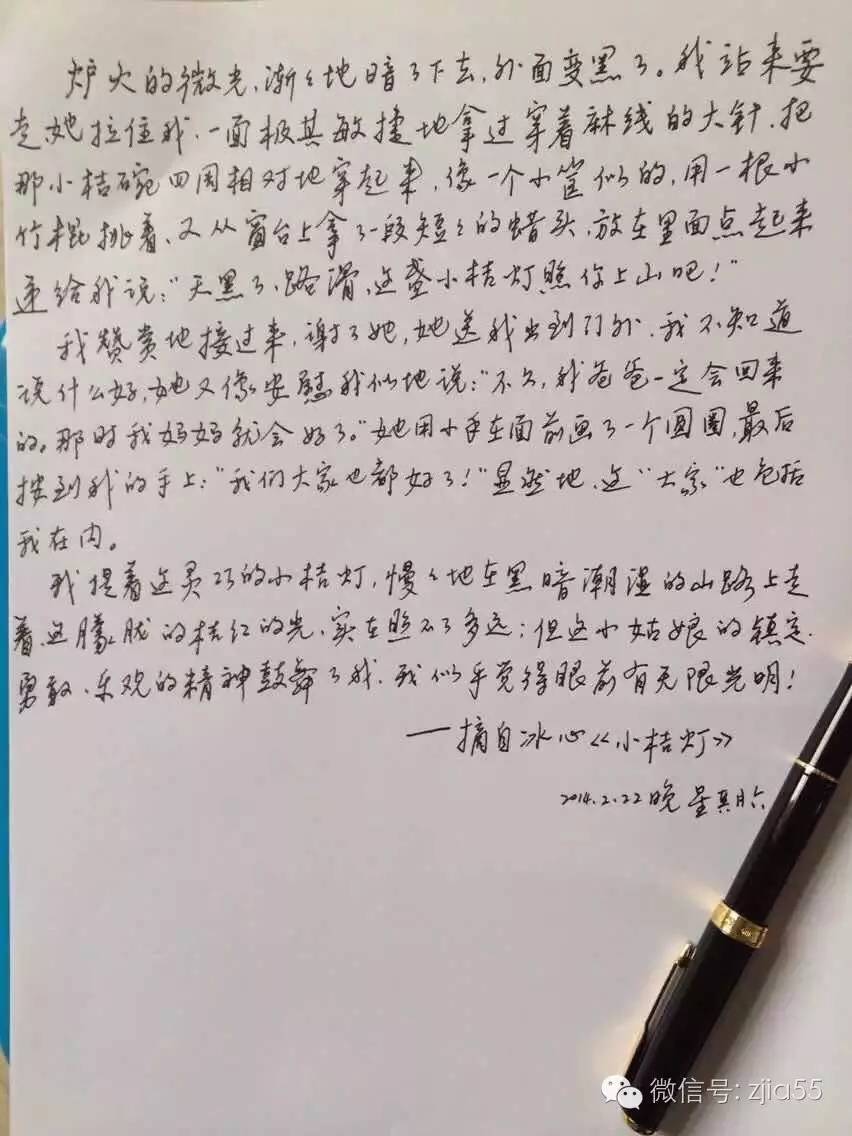 炉火的微光,渐々地暗了下去,外面变黑了。我站来要
走,她拉住我,一面极其敏捷地拿过穿着麻线的大针,把
那小桔碗四周相对地穿起来,像一个小筐似的,用一根小
竹棍挑着,又从窗台上拿了一段短々的蜡头,放在里面点起来
递给我说:“天黑了,路滑,这盏小桔灯照你上山吧!”
我赞赏地接过来,谢了她,她送我出到门外,我不知道
说什么好,她又像安慰我似地说:“不久,我爸爸一定会回来
的。那时我妈妈就会好了。”她用小手在面前画了一个圆圈,最后
按到我的手上:“我们大家也都好了!”显然地,这“大家”也包括
我在内。
我提着这灵巧的小桔灯,慢々地在黑暗潮湿的山路上走
着,这朦胧的桔红的光,实在照不了多远;但这小姑娘的镇定、
勇敢、乐观的精神鼓舞了我,我似乎觉得眼前有无限光明!
——摘自冰心《小桔灯》
2014.2.22晚 星期六
微信号: zjia55